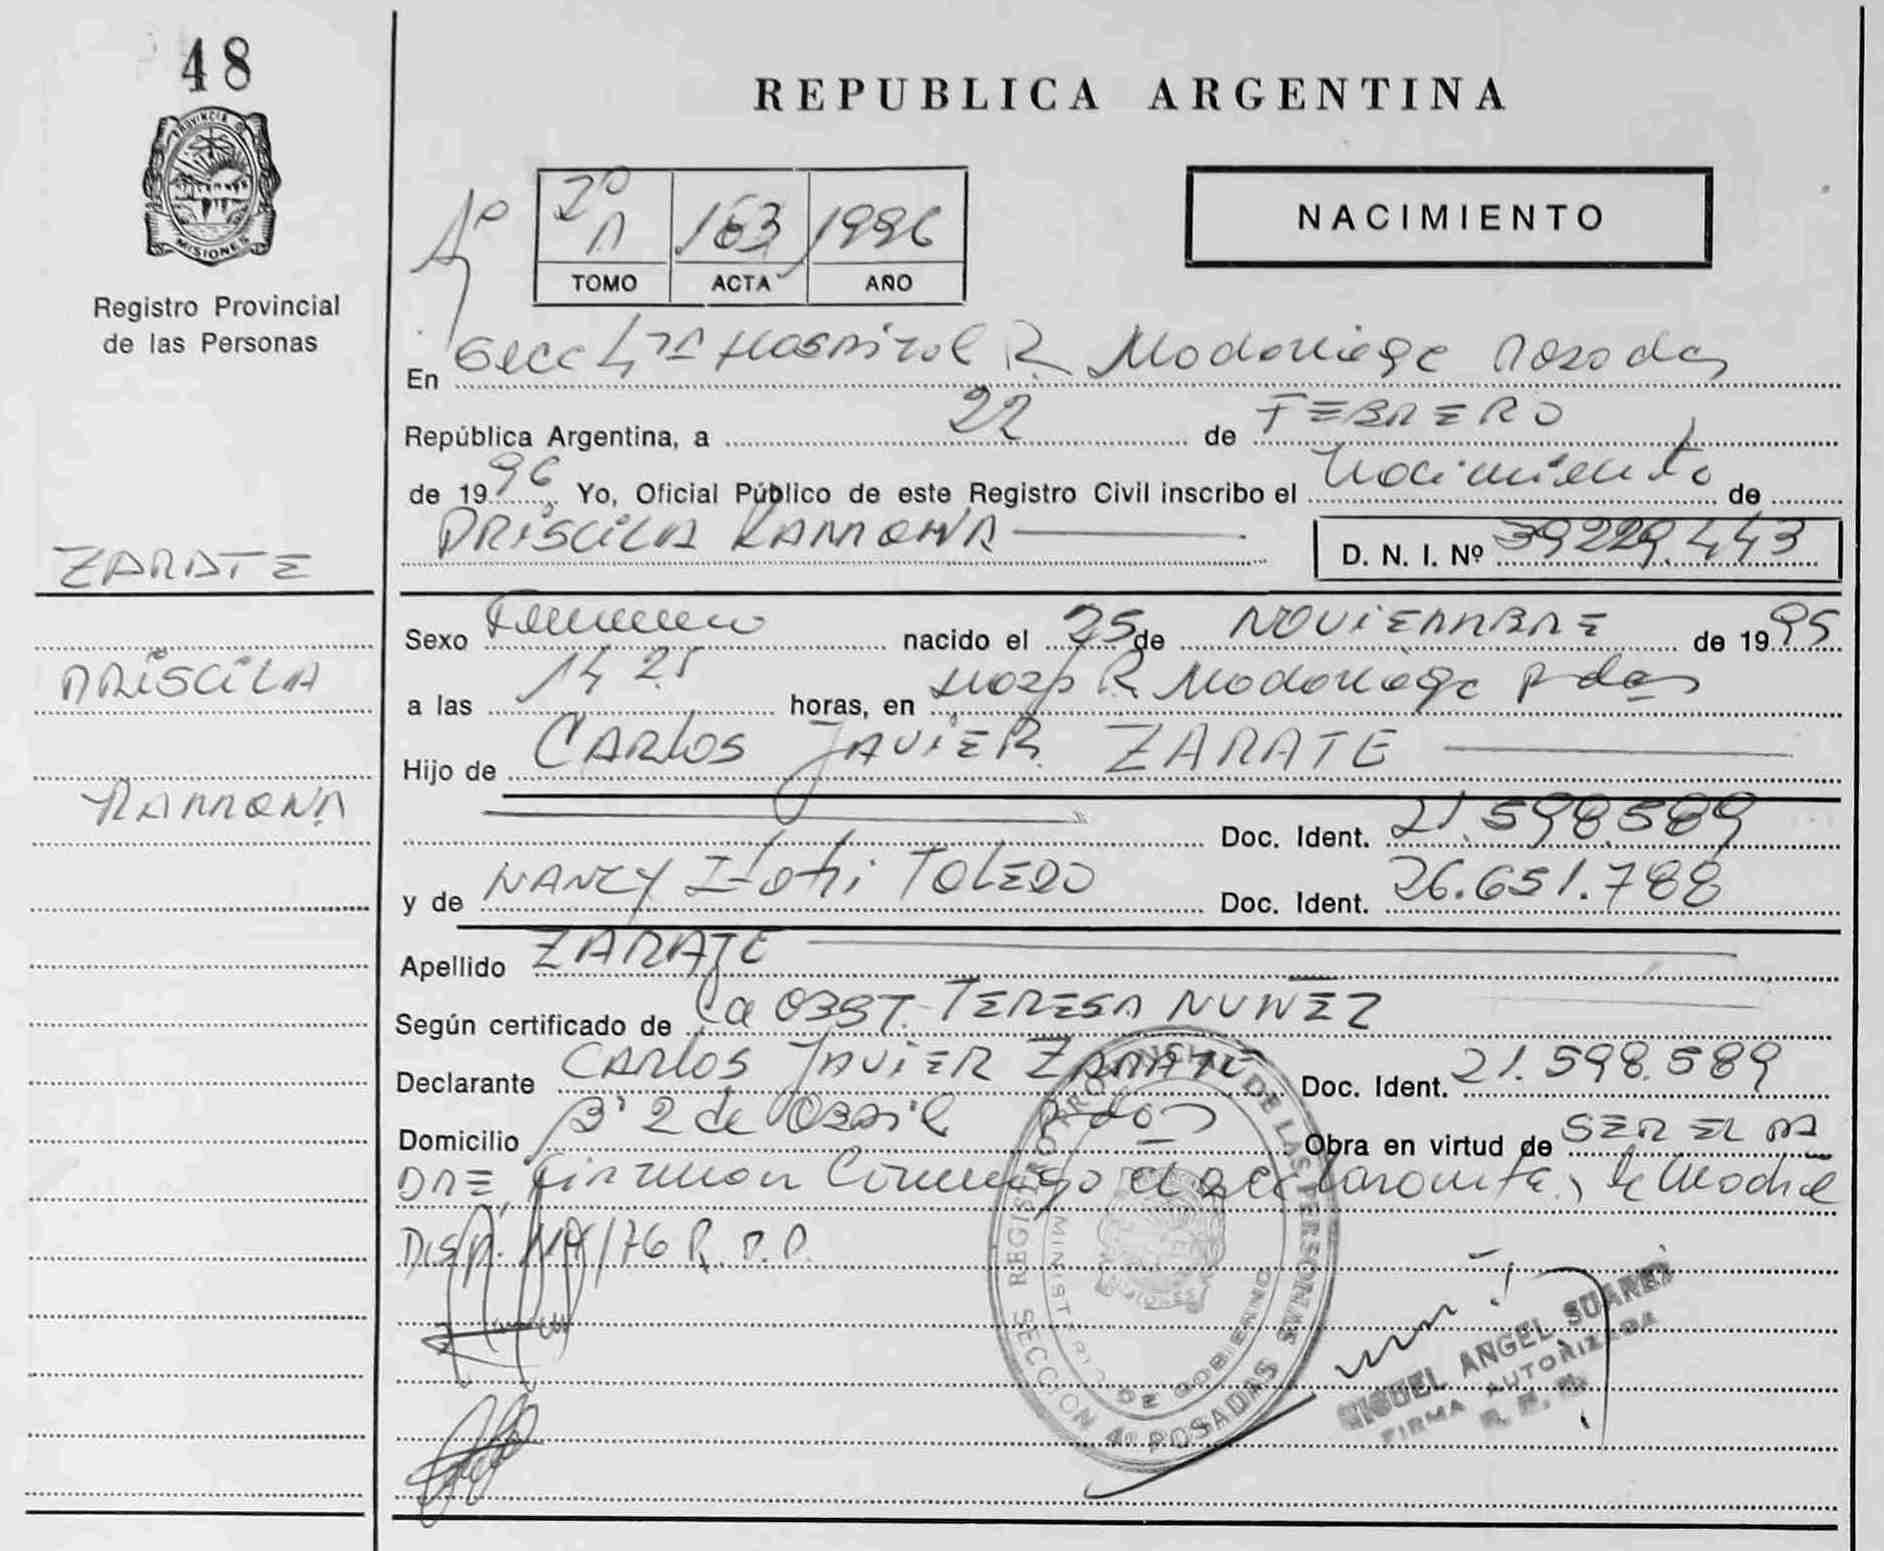 48
PROVINCIA DE
MISIONES
Registro Provincial
de las Personas
ZARATE
PRISCILA
RAMONA
REPUBLICA ARGENTINA
NACIMIENTO
163 1996
TOMO ACTA AÑO
En Secc 4ta Hospital R. Madariaga Posadas
República Argentina, a 22 de FEBRERO
de 1996, Yo, Oficial Público de este Registro Civil inscribo el Nacimiento de
PRISCILA RAMONA D. N. I. Nº 39229.443
Sexo Femenino nacido el 25 de NOVIEMBRE de 1995
a las 14 25 horas, en Hosp R. Madariaga Pdas
Hijo de CARLOS JAVIER ZARATE
Doc. Ident. 21.598.589
y de NANCY Itati TOLEDO Doc. Ident. 26.651.788
Apellido ZARATE
Según certificado de la OBST. TERESA NUÑEZ
Declarante CARLOS JAVIER ZARATE Doc. Ident. 21.598.589
Domicilio Bº 2 de Abril Pdas Obra en virtud de SER EL PA
DRE, firman Conmigo el declarante, la Madre
DISP. /76 R. P. P.
REGISTRO PROVINCIAL DE LAS PERSONAS
MINISTERIO DE GOBIERNO
MISIONES
SECCION 4º POSADAS
MIGUEL ANGEL SUAREZ
FIRMA AUTORIZADA
R. P. P.